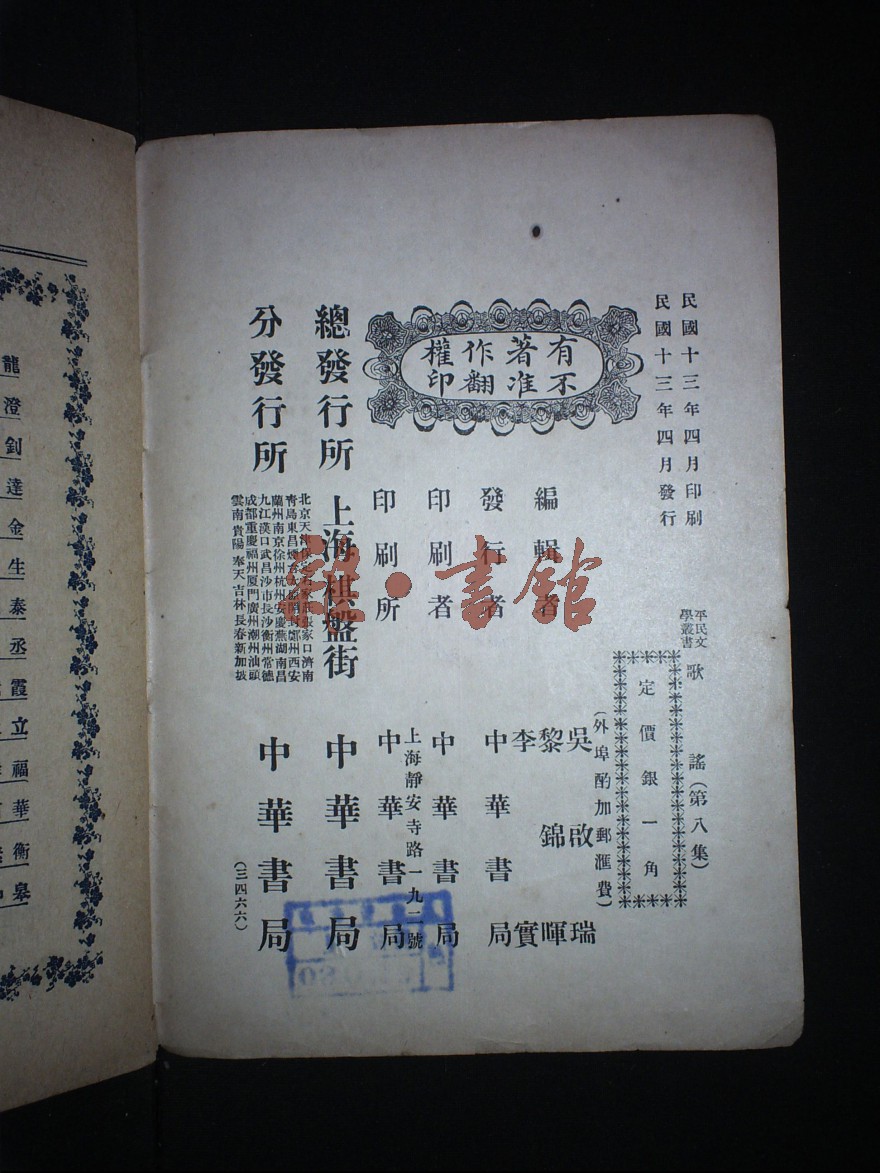 民國十三年四月印刷
民國十三年四月發行
平民文學叢書 歌謠（第八集）
定價銀一角
（外埠酌加郵匯費）
有著作權
不准翻印
編輯者 吳啟瑞
黎錦暉
李實
發行者 中華書局
印刷者 中華書局
上海靜安寺路一九二號
印刷所 中華書局
總發行所 上海棋盤街 中華書局
分發行所
北京天津保定石家莊張家口濟南
青島東昌煙台太原開封鄭州西安
蘭州南京徐州杭州安慶蕪湖南昌
九江漢口武昌沙市長沙衡州常德
成都重慶福州厦門廣州潮州汕頭
雲南貴陽奉天吉林長春新加坡
中華書局
（三四六六）
書館
龍澄釗達金生泰丞霞立福華衡皋